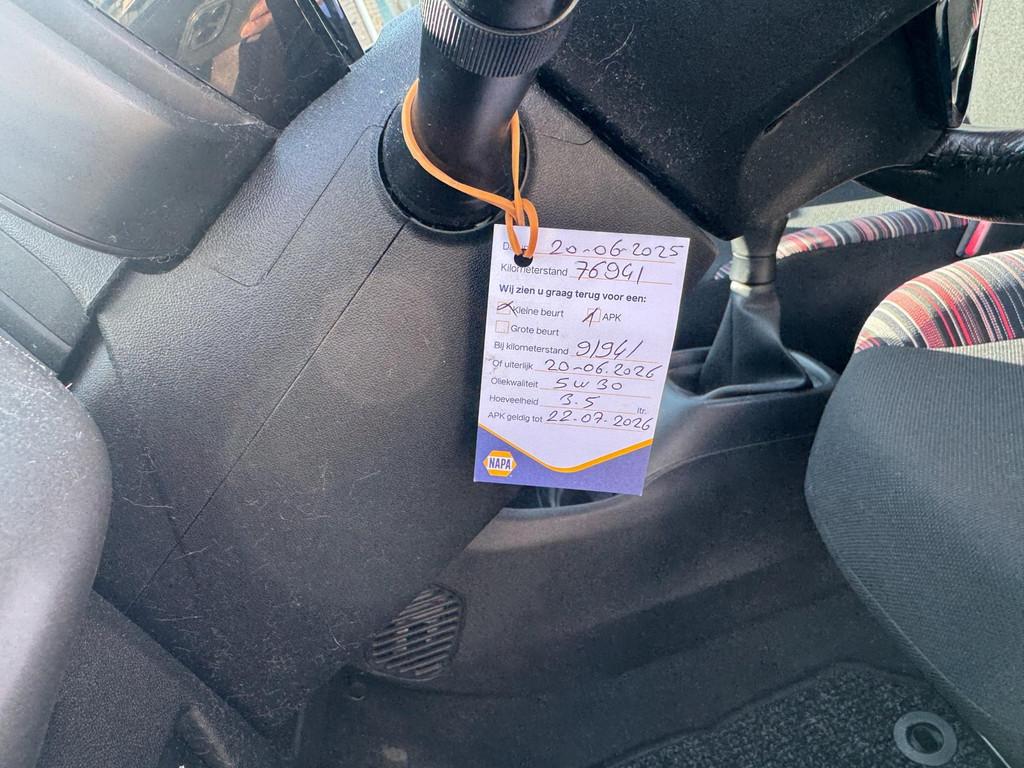 20-06-2025
Kilometerstand 76941
Wij zien u graag terug voor een:
Kleine beurt APK
Grote beurt
Bij kilometerstand 91941
Of uiterlijk 20-06-2026
Oliekwaliteit 5W30
Hoeveelheid 3.5 ltr.
APK geldig tot 22-07-2026
NAPA